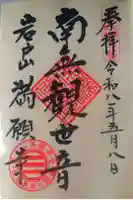 奉拝 令和一年五月八日
南無観世音
岩山 満願寺